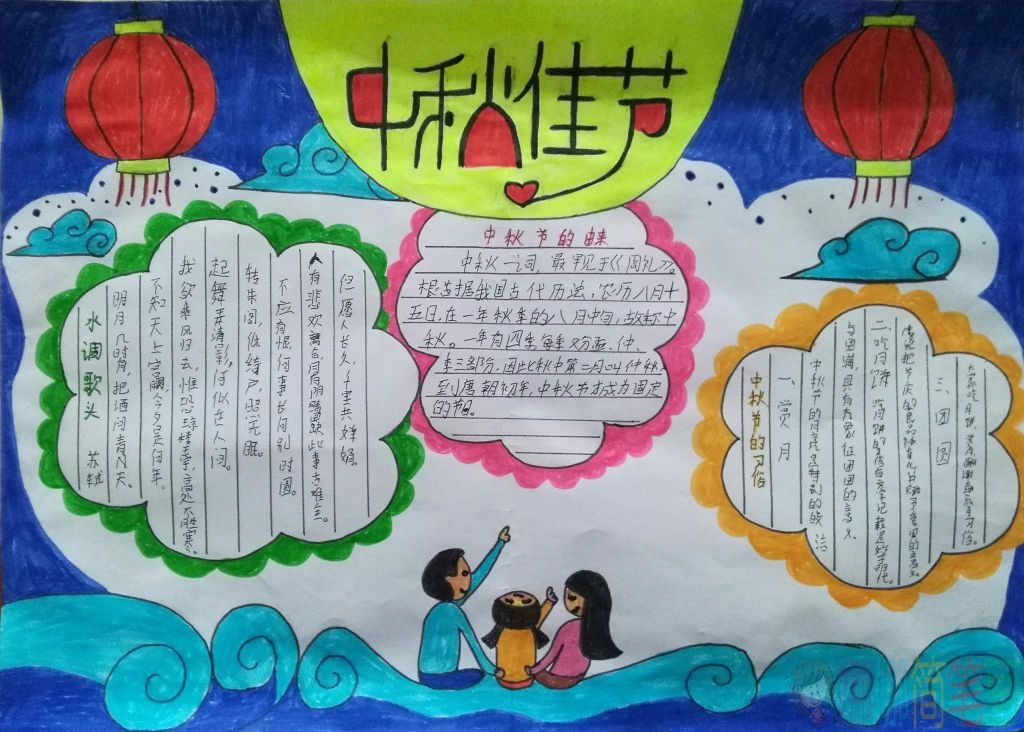 中秋佳节
水调歌头 苏轼
明月几时有,把酒问青天。
不知天上宫阙,今夕是何年。
我欲乘风归去,惟恐琼楼玉宇,高处不胜寒。
起舞弄清影,何似在人间。
转朱阁,低绮户,照无眠。
不应有恨,何事长向别时圆。
人有悲欢离合,月有阴晴圆缺,此事古难全。
但愿人长久,千里共婵娟。
中秋节的由来
中秋一词,最早见于《周礼》。
根据我国古代历法,农历八月十
五日,在一年秋季的八月中旬,故称中
秋。一年有四季,每季又分孟、仲、
季三部分,因此秋中第二月叫仲秋,
到唐朝初年,中秋节才成为固定
的节日。
中秋节的习俗
一、赏月
中秋节的月亮是特别的皎洁
与圆满,具有象征团圆的意义。
二、吃月饼 月饼
三、团圆
简笔